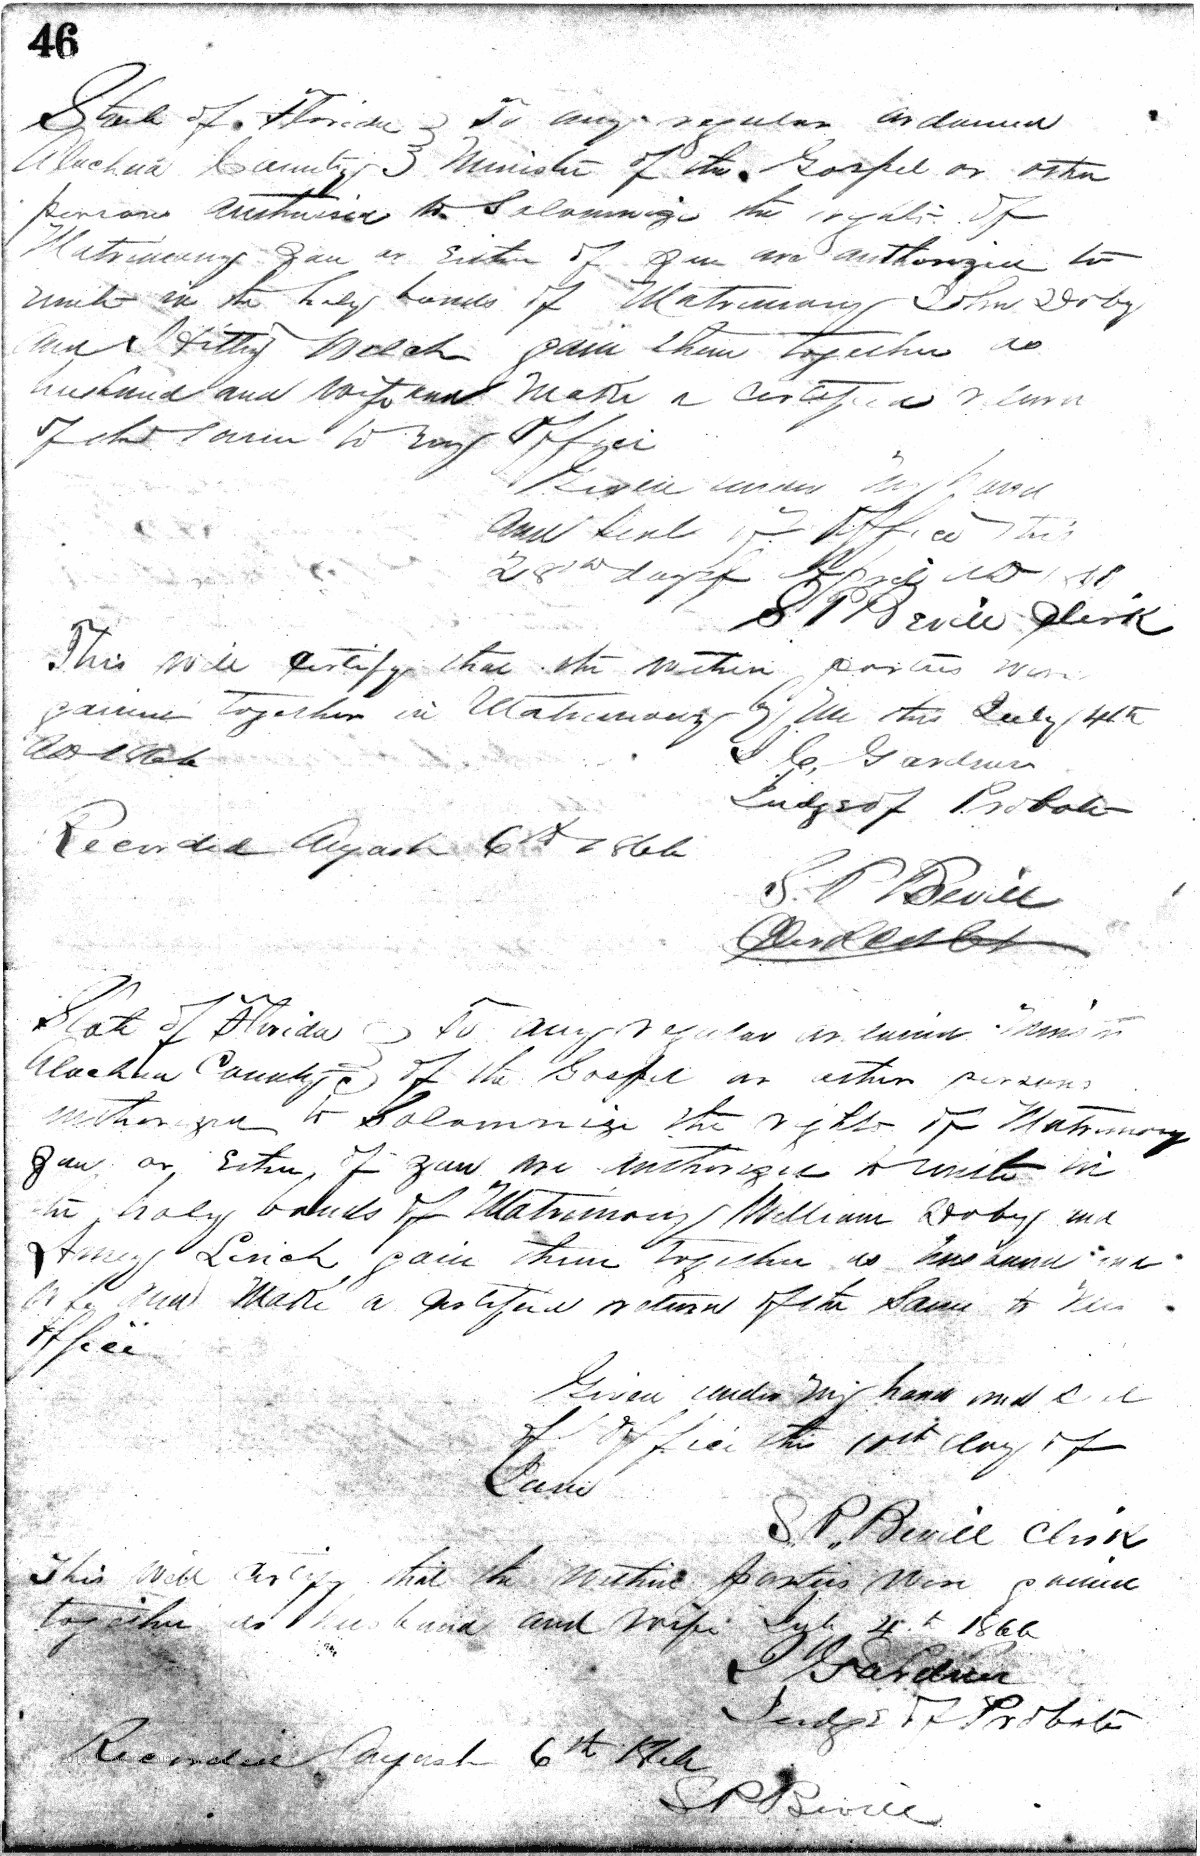 46
State of Florida } To any regular ordained
Alachua County } Minister of the Gospel or other
persons authorised to Solomnize the rights of
Matrimony you or Either of you are authorized to
unite in the holy bonds of Matrimony John Doby
and Kitty Welch join them together as
husband and wife and make a certified return
of the same to my Office
Given under my hand
and seal of Office this
28th day of April AD
S P Bevill Clerk
This will certify that the within parties were
joined together in Matrimony by Me this July 4th
AD 1866
J C, Gardner
Judge of Probate
Recorded August 6th 1866
S. P Bevill
Clerk
State of Florida } To any regular ordained Minister
Alachua County } of the Gospel or other persons
authorized to Solomnize the rights of Matrimony
you or Either of you are authorized to unite in
the holy bonds of Matrimony William Doby and
Linich join them together as husband and
wife and Make a certified return of the Same to this
Office
Given under my hand and seal
of Office this 10th day of
June
S. P. Bevill Clerk
This will certify that the within parties were joined
together as husband and wife July 4th 1866
J Gardner
Judge of Probate
Recorded August 6th 1866
S P Bevill